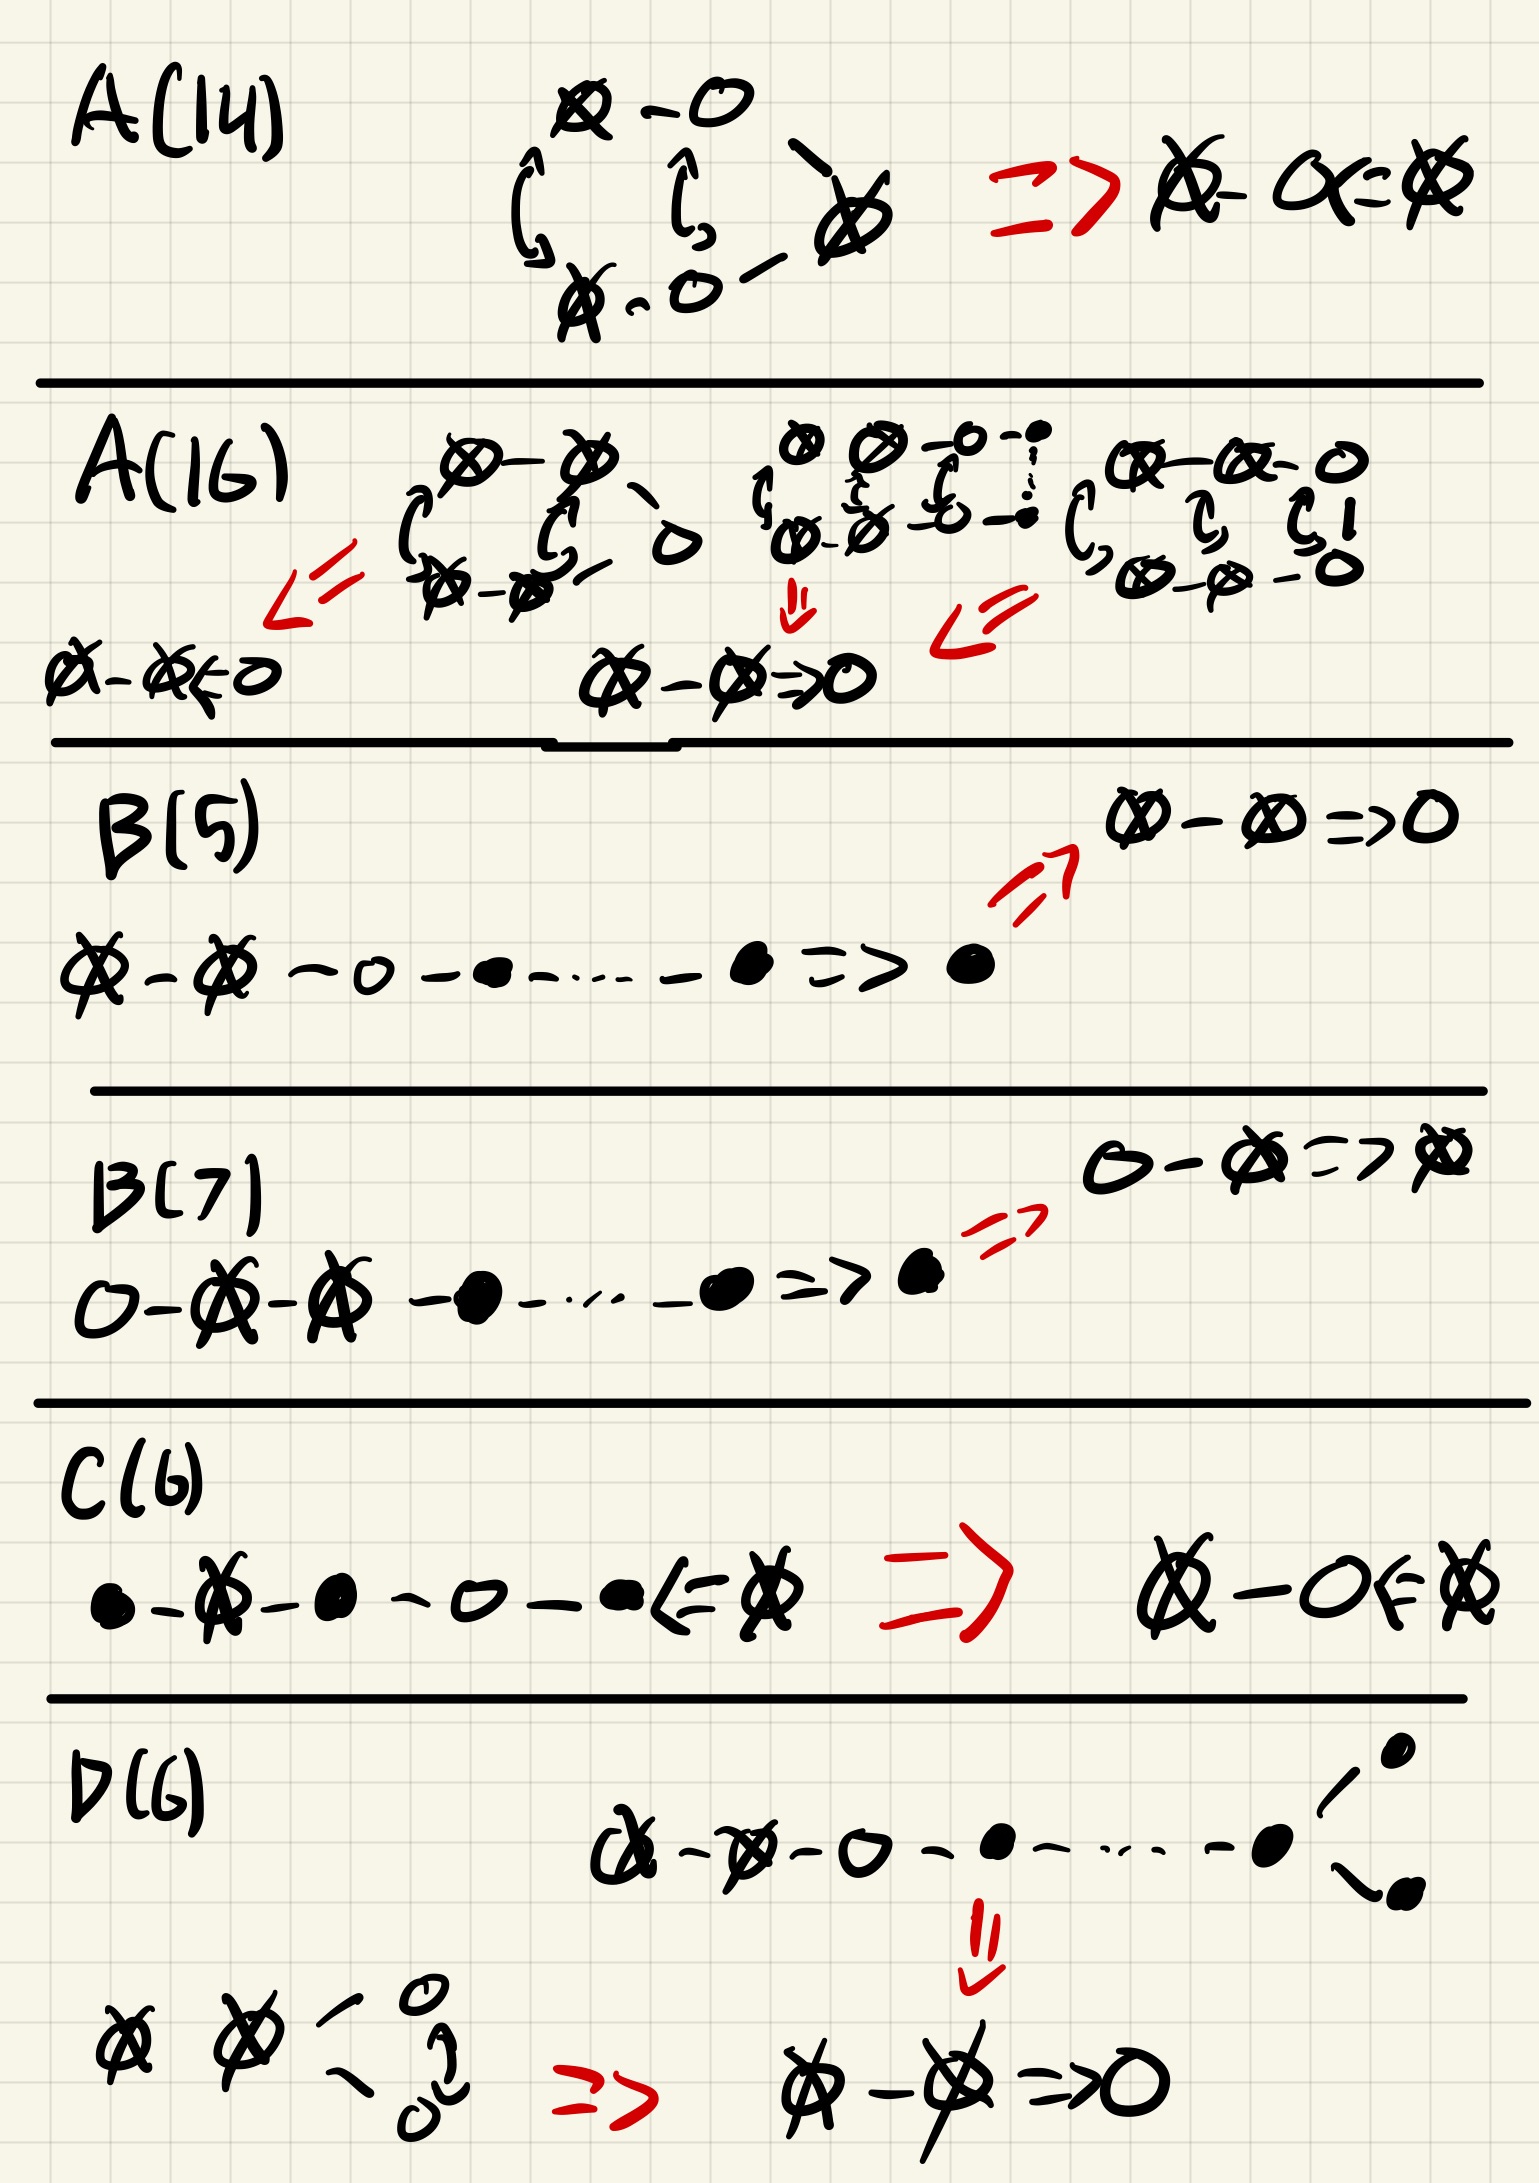 A(14)
A(16)
B(5)
B(7)
C(6)
D(6)